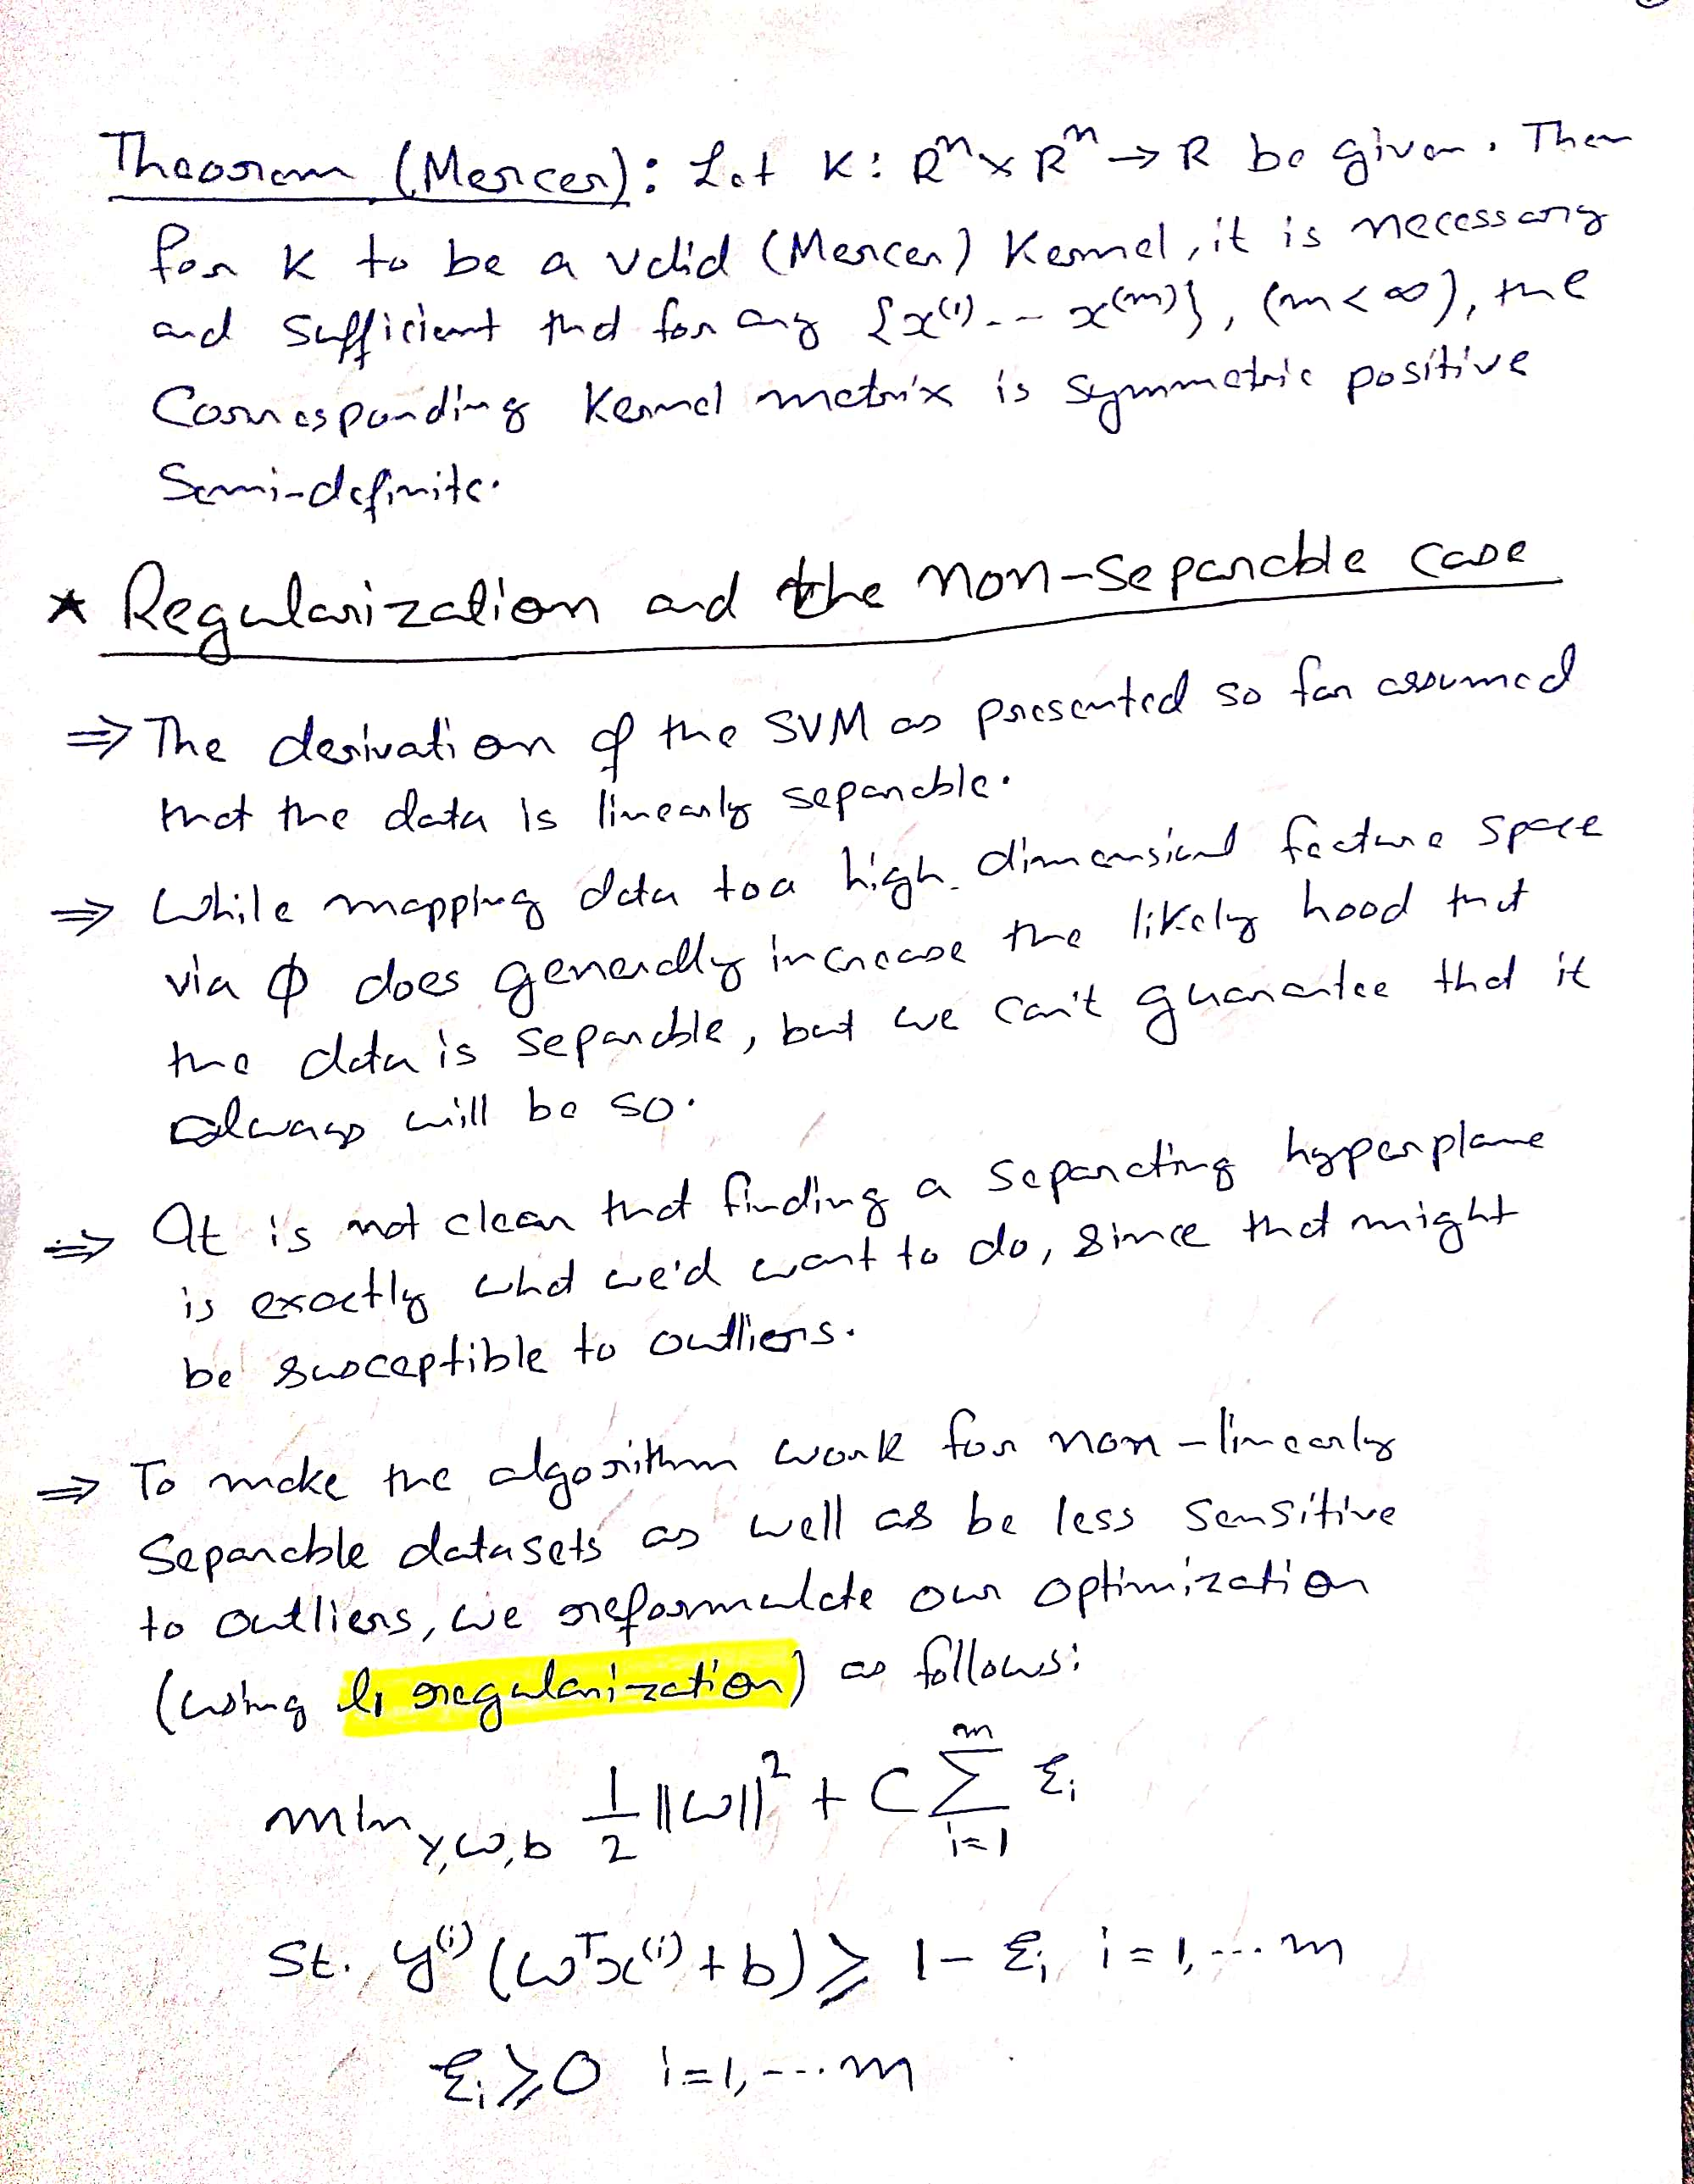 Theorem (Mercer): Let K: Rⁿ x Rⁿ → R be given. Then
for K to be a valid (Mercer) Kernel, it is necessary
and sufficient that for any {x⁽¹⁾ -- x⁽ᵐ⁾}, (m < ∞), the
Corresponding Kernel matrix is symmetric positive
Semi-definite.
* Regularization and the non-separable case
⇒ The derivation of the SVM as presented so far assumed
that the data is linearly separable.
⇒ While mapping data to a high dimensional feature space
via φ does generally increase the likely hood that
the data is separable, but we can't guarantee that it
always will be so.
⇒ It is not clear that finding a separating hyperplane
is exactly what we'd want to do, since that might
be susceptible to outliers.
⇒ To make the algorithm work for non-linearly
Separable datasets as well as be less sensitive
to outliers, we reformulate our optimization
(using l₁ regularization) as follows:
min γ,ω,b 1/2 ||ω||² + C Σ_{i=1}^{m} ξᵢ
St. y⁽ⁱ⁾ (ωᵀx⁽ⁱ⁾ + b) ≥ 1 - ξᵢ, i = 1, ... m
ξᵢ ≥ 0 i = 1, --- m